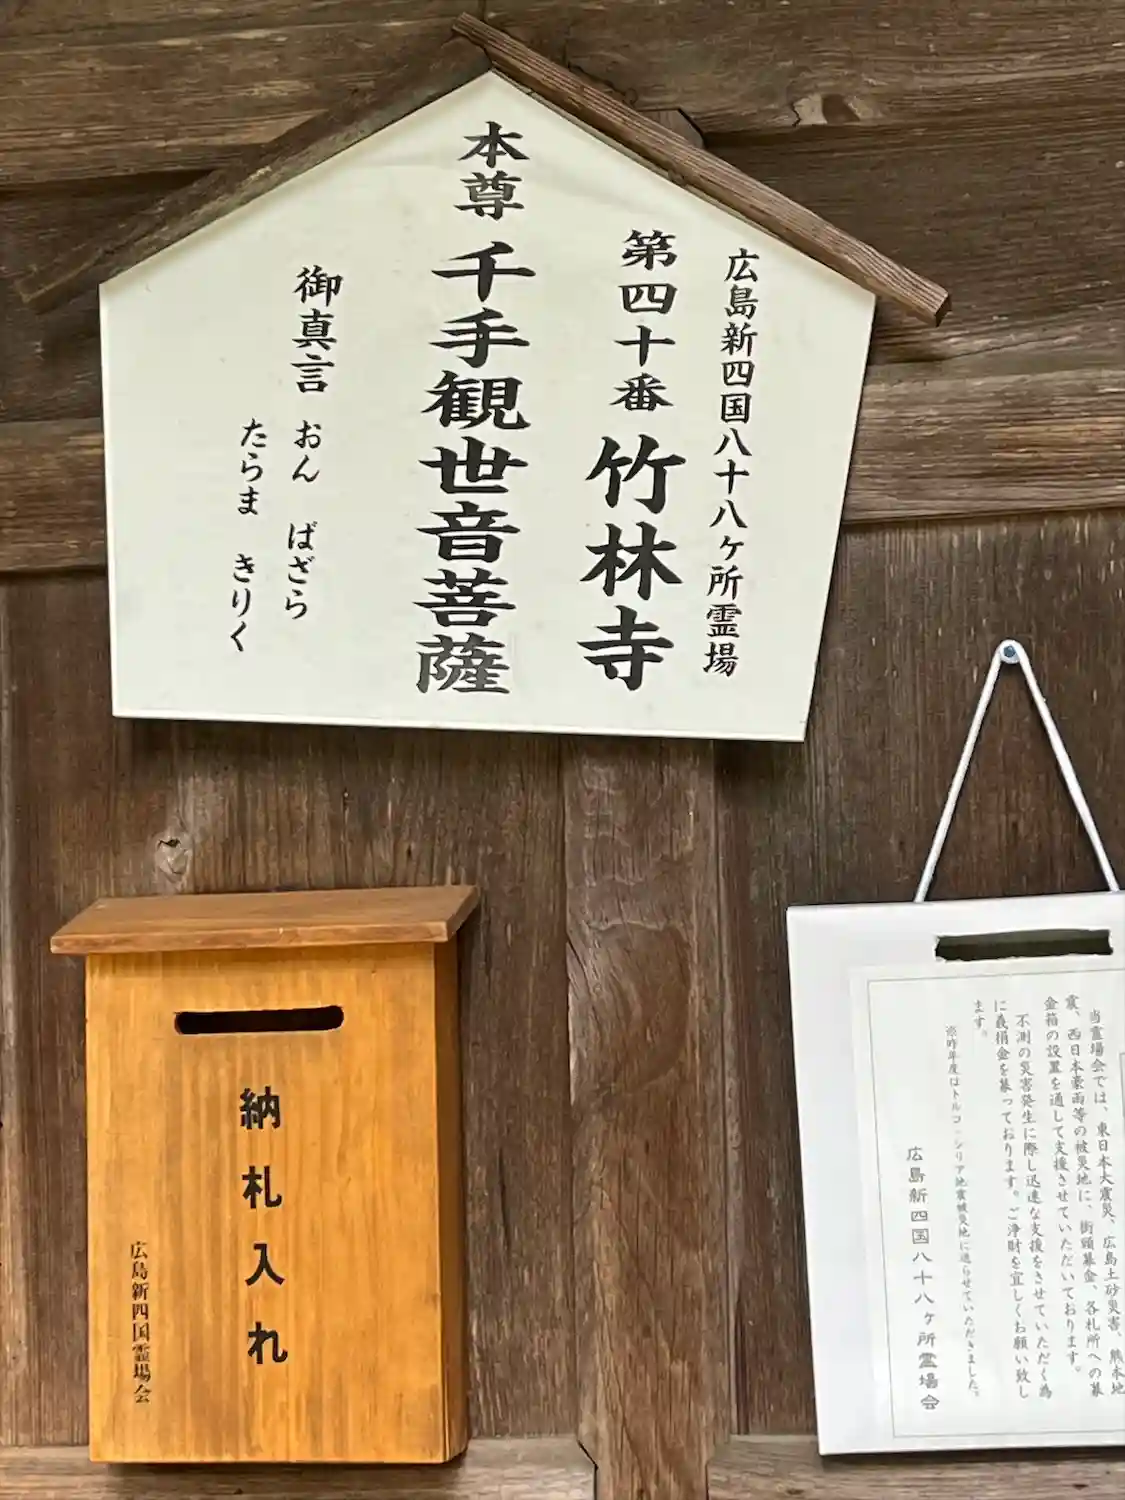 広島新四国八十八ヶ所霊場
第四十番 竹林寺
本尊 千手観世音菩薩
御真言 おん ばざら
たらま きりく
納札入れ
広島新四国霊場会
当霊場会では、東日本大震災、広島土砂災害、熊本地
震、西日本豪雨等の被災地に、街頭募金、各札所への募
金箱の設置を通して支援させていただいております。
不測の災害発生に際し迅速な支援をさせていただく為
に義捐金を募っております。ご浄財を宜しくお願い致し
ます。
※昨年度はトルコ・シリア地震被災地に送らせていただきました。
広島新四国八十八ヶ所霊場会